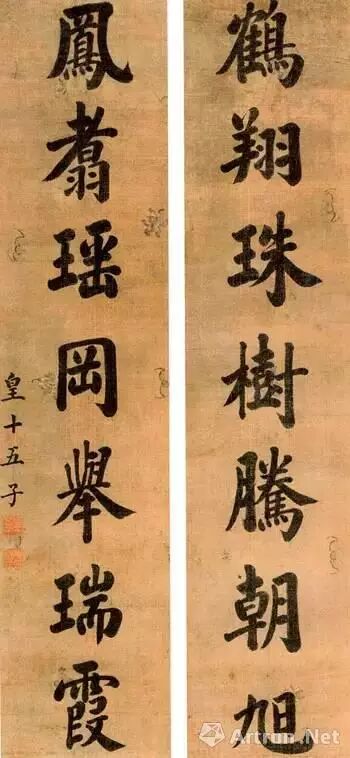 鶴翔珠樹騰朝旭
鳳翥瑶岡舉瑞霞
皇十五子
Artron.Net